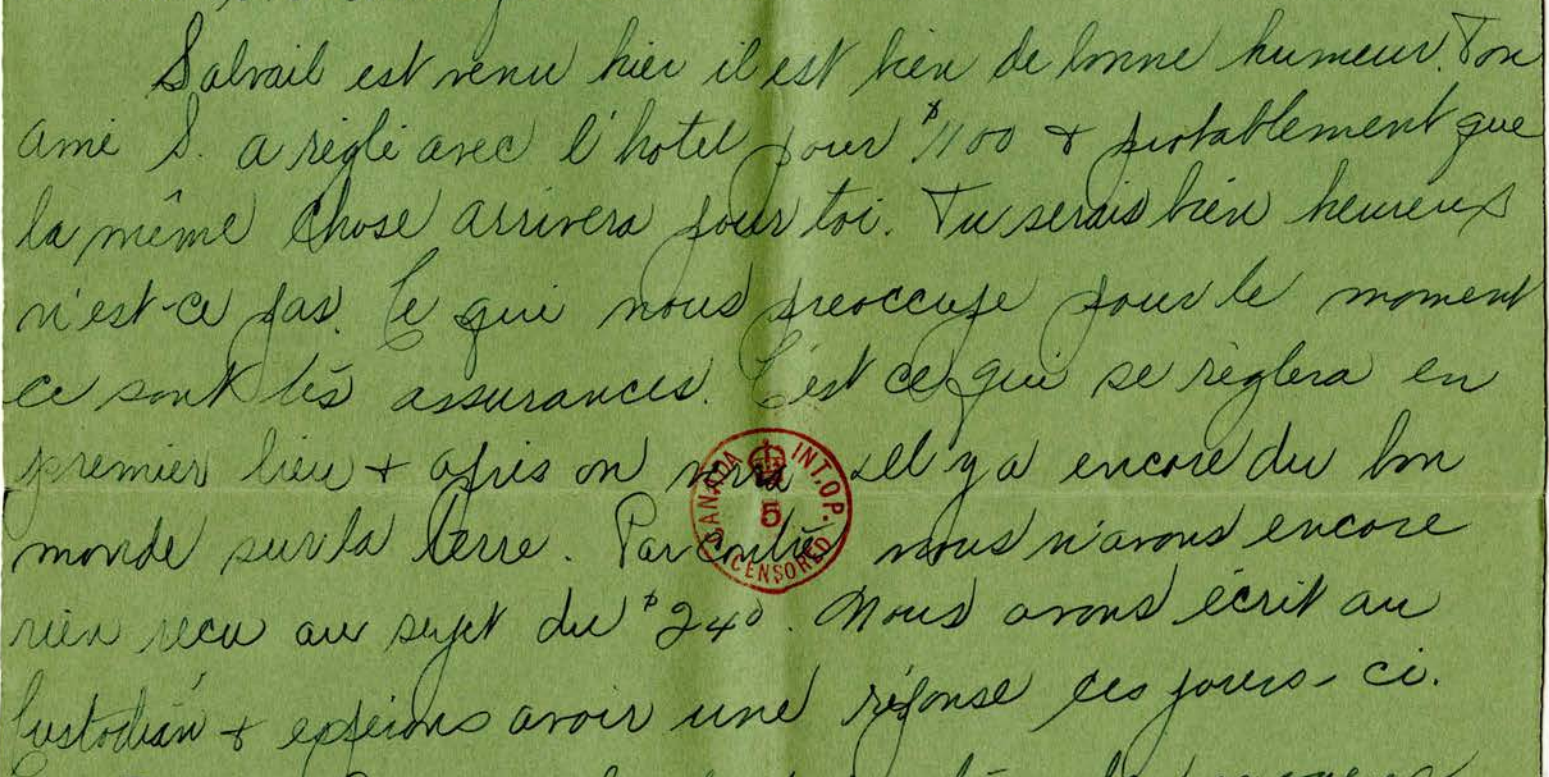 Salvail est venu hier il est bien de bonne humeur. Ton
ami S. a réglé avec l'hotel pour $1100 + probablement que
la même chose arrivera pour toi. Tu serais bien heureux
n'est-ce pas. Ce qui nous preoccupe pour le moment
ce sont les assurances. C'est ce qui se règlera en
premier lieu + après on verra sil y a encore du bon
monde sur la terre. Par contre nous n'avons encore
rien recu au sujet du $240. Nous avons écrit au
Custodian + espérons avoir une réponse ces jours-ci.
CANADA INT. OP.
5
CENSORED